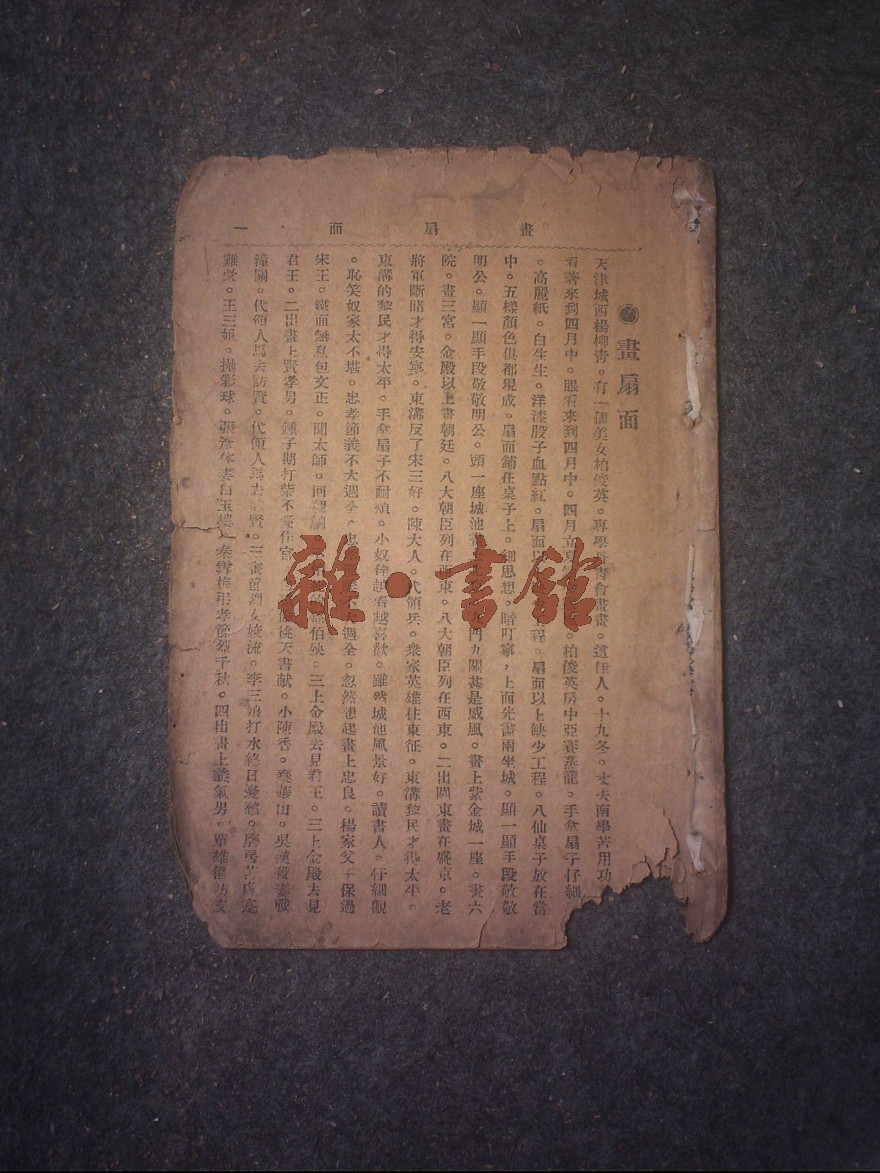 畫扇面 一
畫扇面
天津城西楊柳青。有一個美女柏俊英。專學 會畫畫。這佳人。十九冬。丈夫南學苦用功。
看看來到四月中。眼看來到四月中。四月立夏 。柏俊英房中亞賽蒸籠。手拿扇子仔細
。高麗紙。白生生。洋漆股子血點紅。扇面以 工程。扇面以上缺少工程。八仙桌子放在當
中。五樣顏色俱都現成。扇面鋪在桌子上。細思想。暗叮寧。上面先畫兩坐城。顯一顯手段敬敬
明公。顯一顯手段敬敬明公。頭一座城池 門九關甚是威風。畫上紫金城一座。畫六
院。畫三宮。金殿以上畫朝廷。八大朝臣列在西東。八大朝臣列在西東。二出關東畫在盛京。老
將軍斷賭才得安寧。東溝反了宋三好。陳大人。代領兵。衆家英雄往東征。東溝黎民才得太平。
東溝的黎民才得太平。手拿扇子不耐煩。小奴佳越看越喜歡。雖然城池風景好。讀書人。仔細觀
。恥笑奴家太不堪。忠孝節義不大週全。忠 不 週全。忽然想起畫上忠良。楊家父子保過
宋王。鐵面無私包文正。聞太師。回朝綱 伯殃。三上金殿去見君王。三上金殿去見
君王。二出畫上賢孝男。鍾子期打柴不愛作官。 桃天書献。小陳香。棄華山。吳漢殺妻戰
潼關。代領人馬去訪賢。代領人馬去訪賢。三畫節烈女娥流。李三娘打水終日憂愁。磨房苦處寔
難受。王三姐。拋彩球。張彥休妻白玉樓。秦雪梅吊孝節烈千秋。四出畫上義氣男。單雄信訪友
雜·書舘